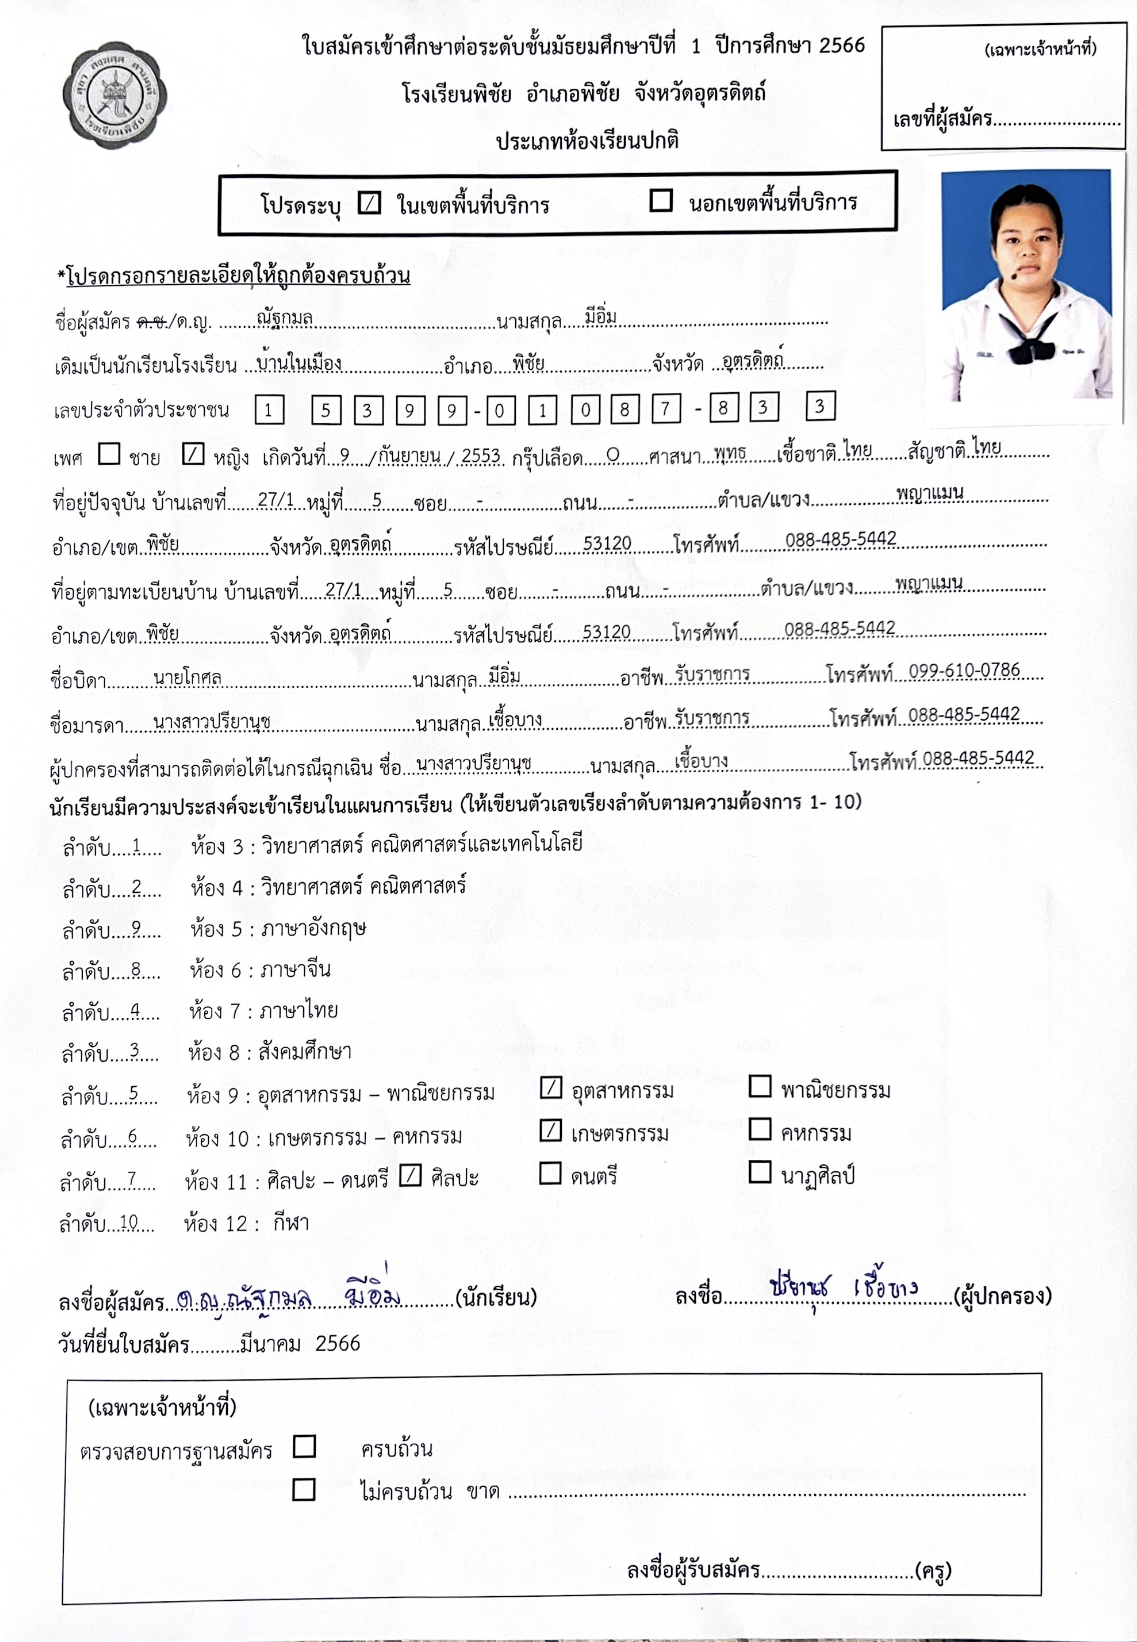 ใบสมัครเข้าศึกษาต่อระดับชั้นมัธยมศึกษาปีที่ 1 ปีการศึกษา 2566
โรงเรียนพิชัย อำเภอพิชัย จังหวัดอุตรดิตถ์
ประเภทห้องเรียนปกติ
(เฉพาะเจ้าหน้าที่)
เลขที่ผู้สมัคร.........................
โรงเรียนพิชัย
โปรดระบุ ☑ ในเขตพื้นที่บริการ ☐ นอกเขตพื้นที่บริการ
*โปรดกรอกรายละเอียดให้ถูกต้องครบถ้วน
ชื่อผู้สมัคร ด.ช./ด.ญ. ณัฐกมล นามสกุล มีอิ่ม
เดิมเป็นนักเรียนโรงเรียน บ้านในเมือง อำเภอ พิชัย จังหวัด อุตรดิตถ์
เลขประจำตัวประชาชน 1 5 3 9 9 - 0 1 0 8 7 - 8 3 3
เพศ ☐ ชาย ☑ หญิง เกิดวันที่ 9 / กันยายน / 2553 กรุ๊ปเลือด O ศาสนา พุทธ เชื้อชาติ ไทย สัญชาติ ไทย
ที่อยู่ปัจจุบัน บ้านเลขที่ 27/1 หมู่ที่ 5 ซอย - ถนน - ตำบล/แขวง พญาแมน
อำเภอ/เขต พิชัย จังหวัด อุตรดิตถ์ รหัสไปรษณีย์ 53120 โทรศัพท์ 088-485-5442
ที่อยู่ตามทะเบียนบ้าน บ้านเลขที่ 27/1 หมู่ที่ 5 ซอย - ถนน - ตำบล/แขวง พญาแมน
อำเภอ/เขต พิชัย จังหวัด อุตรดิตถ์ รหัสไปรษณีย์ 53120 โทรศัพท์ 088-485-5442
ชื่อบิดา นายโกศล นามสกุล มีอิ่ม อาชีพ รับราชการ โทรศัพท์ 099-610-0786
ชื่อมารดา นางสาวปรียานุช นามสกุล เชื้อบาง อาชีพ รับราชการ โทรศัพท์ 088-485-5442
ผู้ปกครองที่สามารถติดต่อได้ในกรณีฉุกเฉิน ชื่อ นางสาวปรียานุช นามสกุล เชื้อบาง โทรศัพท์ 088-485-5442
นักเรียนมีความประสงค์จะเข้าเรียนในแผนการเรียน (ให้เขียนตัวเลขเรียงลำดับตามความต้องการ 1- 10)
ลำดับ 1 ห้อง 3 : วิทยาศาสตร์ คณิตศาสตร์และเทคโนโลยี
ลำดับ 2 ห้อง 4 : วิทยาศาสตร์ คณิตศาสตร์
ลำดับ 9 ห้อง 5 : ภาษาอังกฤษ
ลำดับ 8 ห้อง 6 : ภาษาจีน
ลำดับ 4 ห้อง 7 : ภาษาไทย
ลำดับ 3 ห้อง 8 : สังคมศึกษา
ลำดับ 5 ห้อง 9 : อุตสาหกรรม – พาณิชยกรรม ☑ อุตสาหกรรม ☐ พาณิชยกรรม
ลำดับ 6 ห้อง 10 : เกษตรกรรม – คหกรรม ☑ เกษตรกรรม ☐ คหกรรม
ลำดับ 7 ห้อง 11 : ศิลปะ – ดนตรี ☑ ศิลปะ ☐ ดนตรี ☐ นาฏศิลป์
ลำดับ 10 ห้อง 12 : กีฬา
ลงชื่อผู้สมัคร ด.ญ.ณัฐกมล มีอิ่ม (นักเรียน) ลงชื่อ ปรียานุช เชื้อบาง (ผู้ปกครอง)
วันที่ยื่นใบสมัคร..........มีนาคม 2566
(เฉพาะเจ้าหน้าที่)
ตรวจสอบการฐานสมัคร ☐ ครบถ้วน
☐ ไม่ครบถ้วน ขาด ..........
ลงชื่อผู้รับสมัคร..............................(ครู)